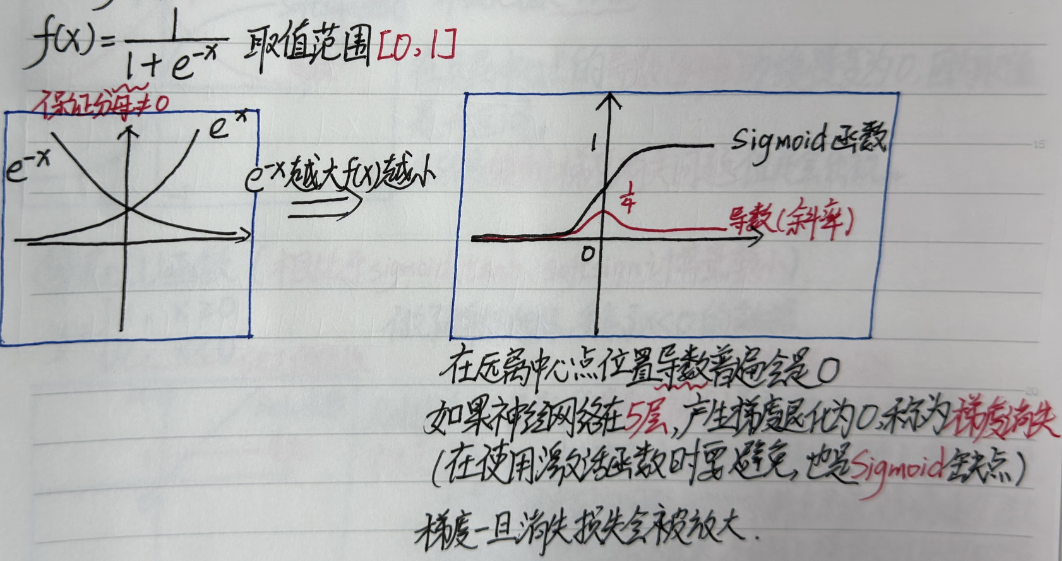 f(x)=1/(1+e^-x) 取值范围[0,1]
保证分母≠0
e^-x
e^x
e^-x越大f(x)越小
1
Sigmoid函数
1/4
导数(斜率)
0
在远离中心点位置导数普遍会是0
如果神经网络在5层,产生梯度退化为0,称为梯度消失
(在使用激活函数时要避免,也是Sigmoid缺点)
梯度一旦消失损失会被放大.